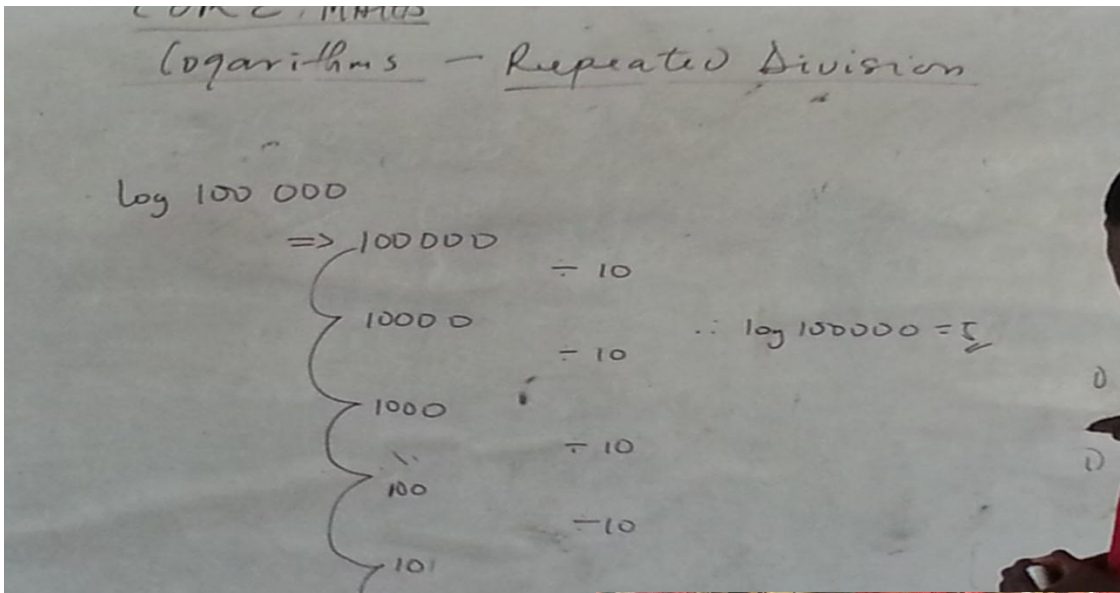 CORE MATHS
Logarithms - Repeated Division
log 100 000
=> 100000
÷ 10
10000
÷ 10
∴ log 100000 = 5
1000
÷ 10
100
÷10
10